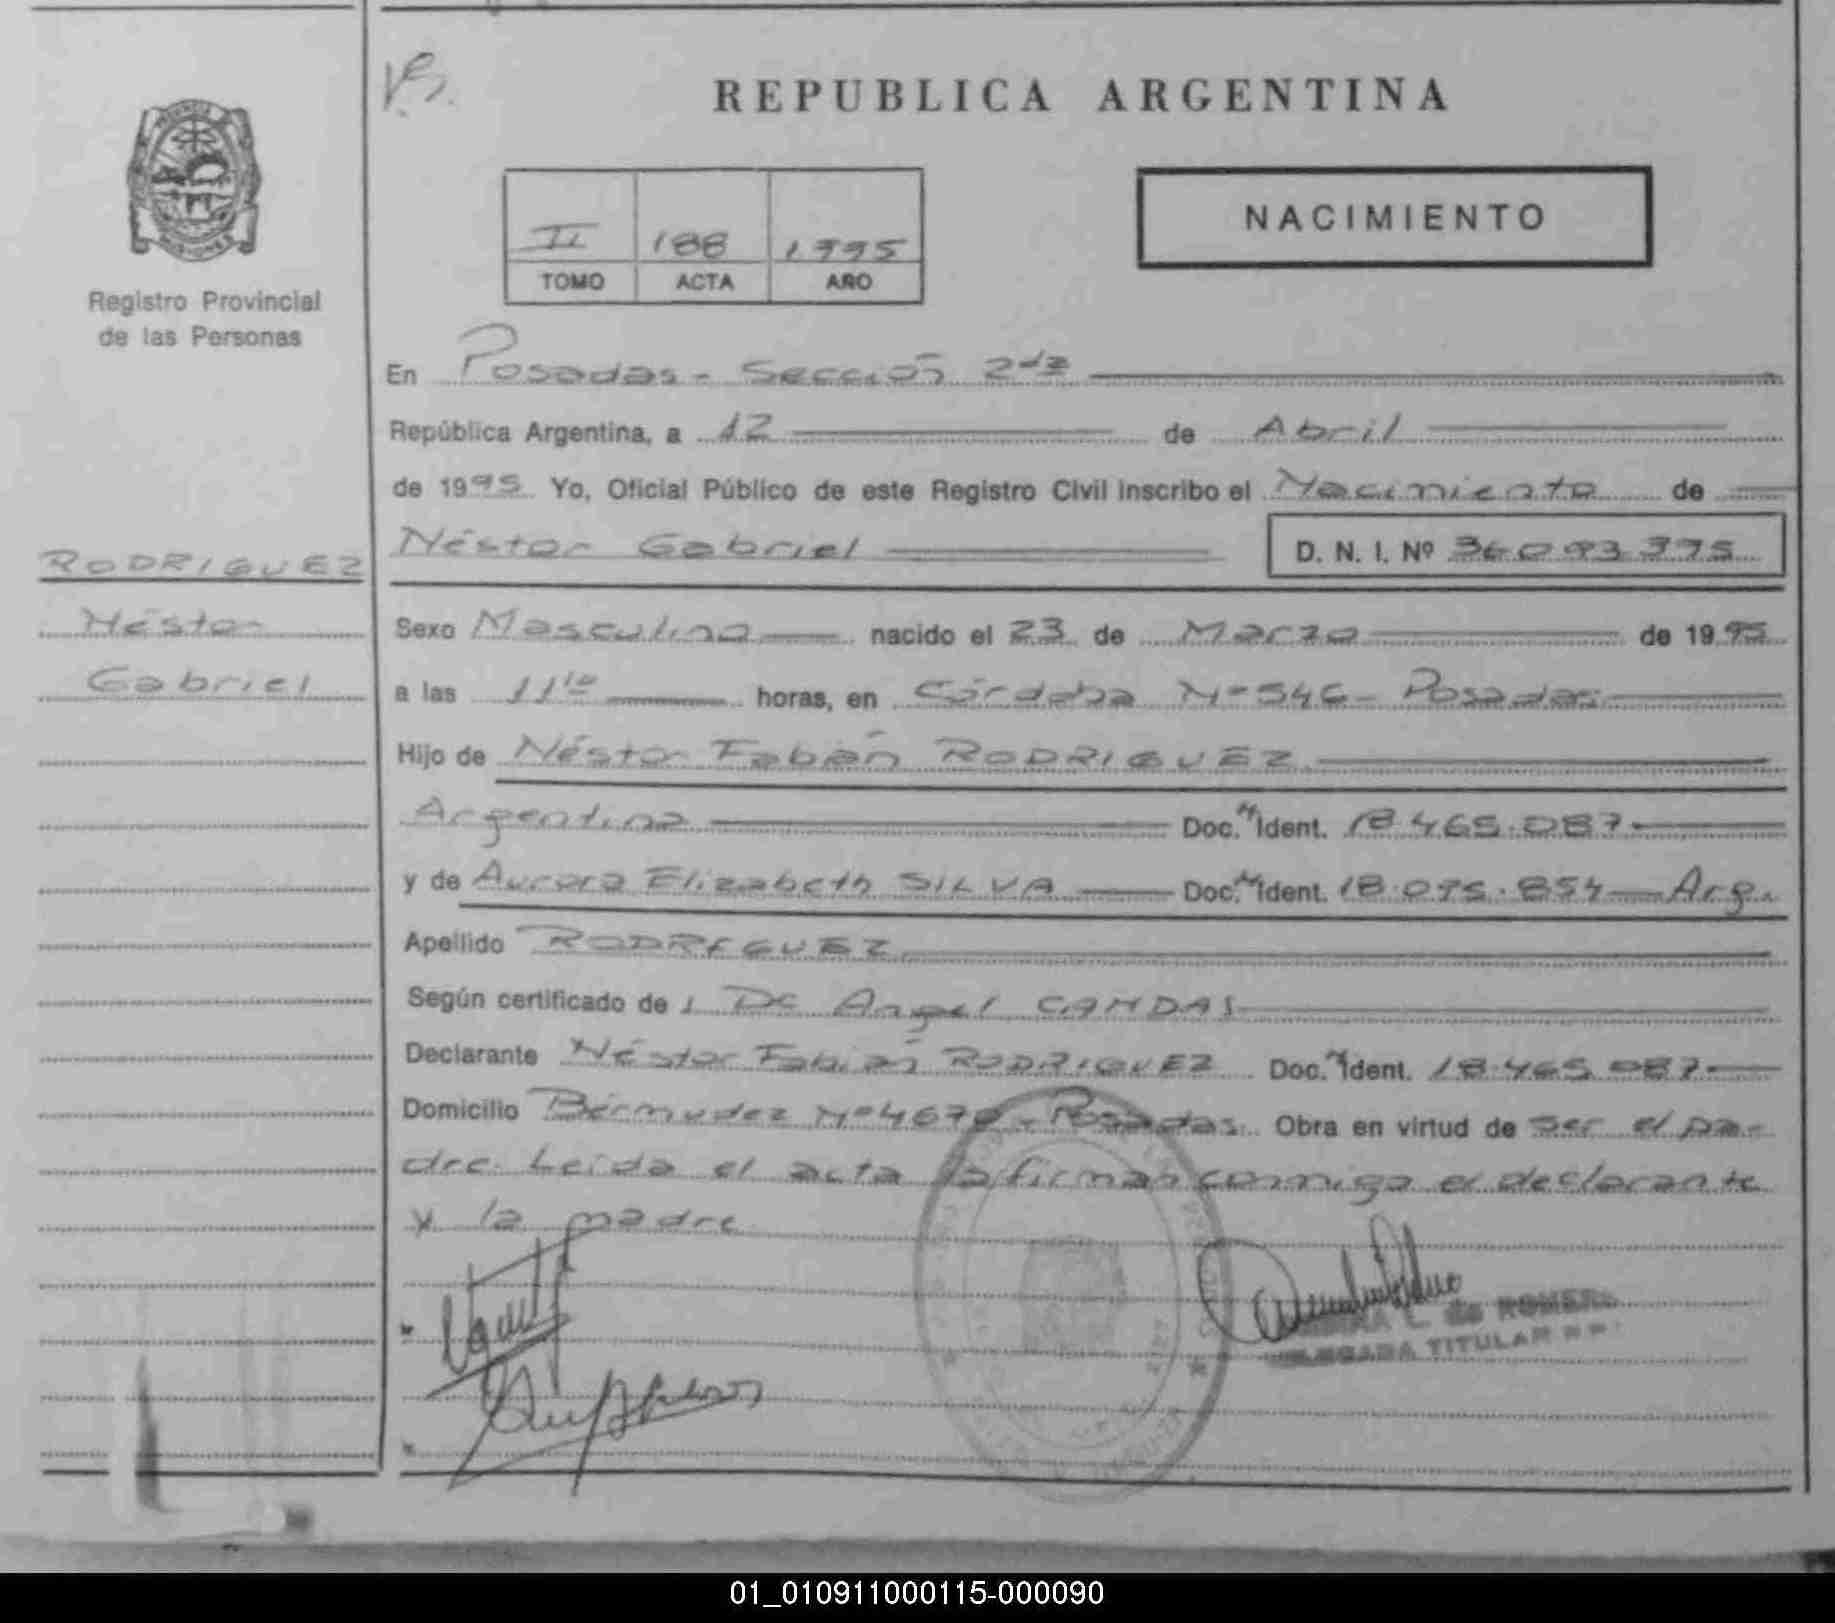 REPUBLICA ARGENTINA
NACIMIENTO
II 188 1.995
TOMO ACTA AÑO
Registro Provincial
de las Personas
En Posadas - Sección 2da
República Argentina, a 12 de Abril
de 1995 Yo, Oficial Público de este Registro Civil inscribo el Nacimiento de
RODRIGUEZ
Néstor Gabriel D. N. I. Nº 36.093.395
Néstor
Sexo Masculino nacido el 23 de Marzo de 1995
Gabriel
a las 11 horas, en Córdoba Nº 546 - Posadas
Hijo de Néstor Fabián RODRIGUEZ
Argentino Doc. Ident. 18.465.087
y de Aurora Elizabeth SILVA Doc. Ident. 18.095.854 Arg.
Apellido RODRIGUEZ
Según certificado de Dr Angel CANDAS
Declarante Néstor Fabián RODRIGUEZ Doc. Ident. 18.465.087
Domicilio Bermudez Nº 4670 - Posadas Obra en virtud de ser el pa-
dre. Leída el acta la firman conmigo el declarante
y la madre
L. de ROMERO
DELEGADA TITULAR R.P.
01_010911000115-000090